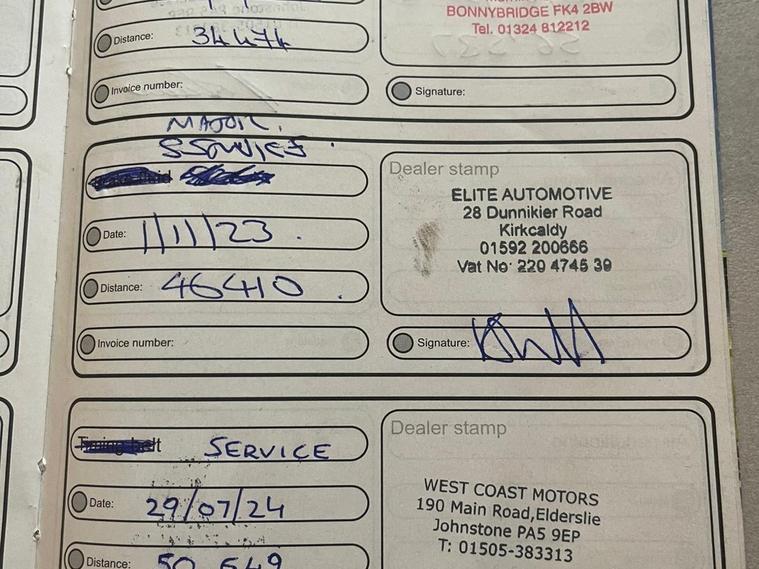 BONNYBRIDGE FK4 2BW
Tel. 01324 812212
Distance: 34474
Invoice number:
Signature:
MAJOR
SERVICE
Dealer stamp
ELITE AUTOMOTIVE
28 Dunnikier Road
Kirkcaldy
01592 200666
Vat No: 220 4745 39
Date: 1/11/23
Distance: 46410
Invoice number:
Signature:
Timing belt SERVICE
Dealer stamp
WEST COAST MOTORS
190 Main Road, Elderslie
Johnstone PA5 9EP
T: 01505-383313
Date: 29/07/24
Distance: 50 649